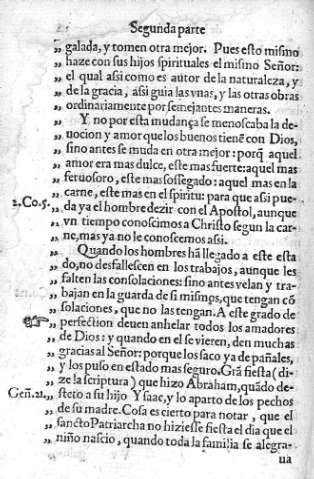 Segunda parte
„ galada, y tomen otra mejor. Pues esto mismo
„ haze con sus hijos spirituales el mismo Señor:
„ el qual assi como es autor de la naturaleza, y
„ de la gracia, assi guia las vnas, y las otras obras
„ ordinariamente por semejantes maneras.
„ Y no por esta mudança se menoscaba la de-
„ uocion y amor que los buenos tienē con Dios,
„ sino antes se muda en otra mejor: porq̄ aquel
„ amor era mas dulce, este mas fuerte: aquel mas
„ feruoroso, este mas sossegado: aquel mas en la
„ carne, este mas en el spiritu: para que assi pue-
2. Co. 5. „ da ya el hombre dezir con el Apostol, aunque
„ vn tiempo conoscimos a Christo segun la car-
„ ne, mas ya no le conoscemos assi.
„ Quando los hombres hā llegado a este esta
„ do, no desfallescen en los trabajos, aunque les
„ falten las consolaciones: sino antes velan y tra-
„ bajan en la guarda de si mismos, que tengan cō
„ solaciones, que no las tengan. A este grado de
☞ „ perfection deuen anhelar todos los amadores
„ de Dios: y quando en el se vieren, den muchas
„ gracias al Señor: porque los saco ya de pañales,
„ y los puso en estado mas seguro. Grā fiesta (di-
„ ze la scriptura) que hizo Abraham, quādo de-
Gen. 21. „ steto a su hijo Ysaac, y lo aparto de los pechos
„ de su madre. Cosa es cierto para notar, que el
„ sancto Patriarcha no hiziesse fiesta el dia que el
„ niño nascio, quando toda la familia se alegra-
ua